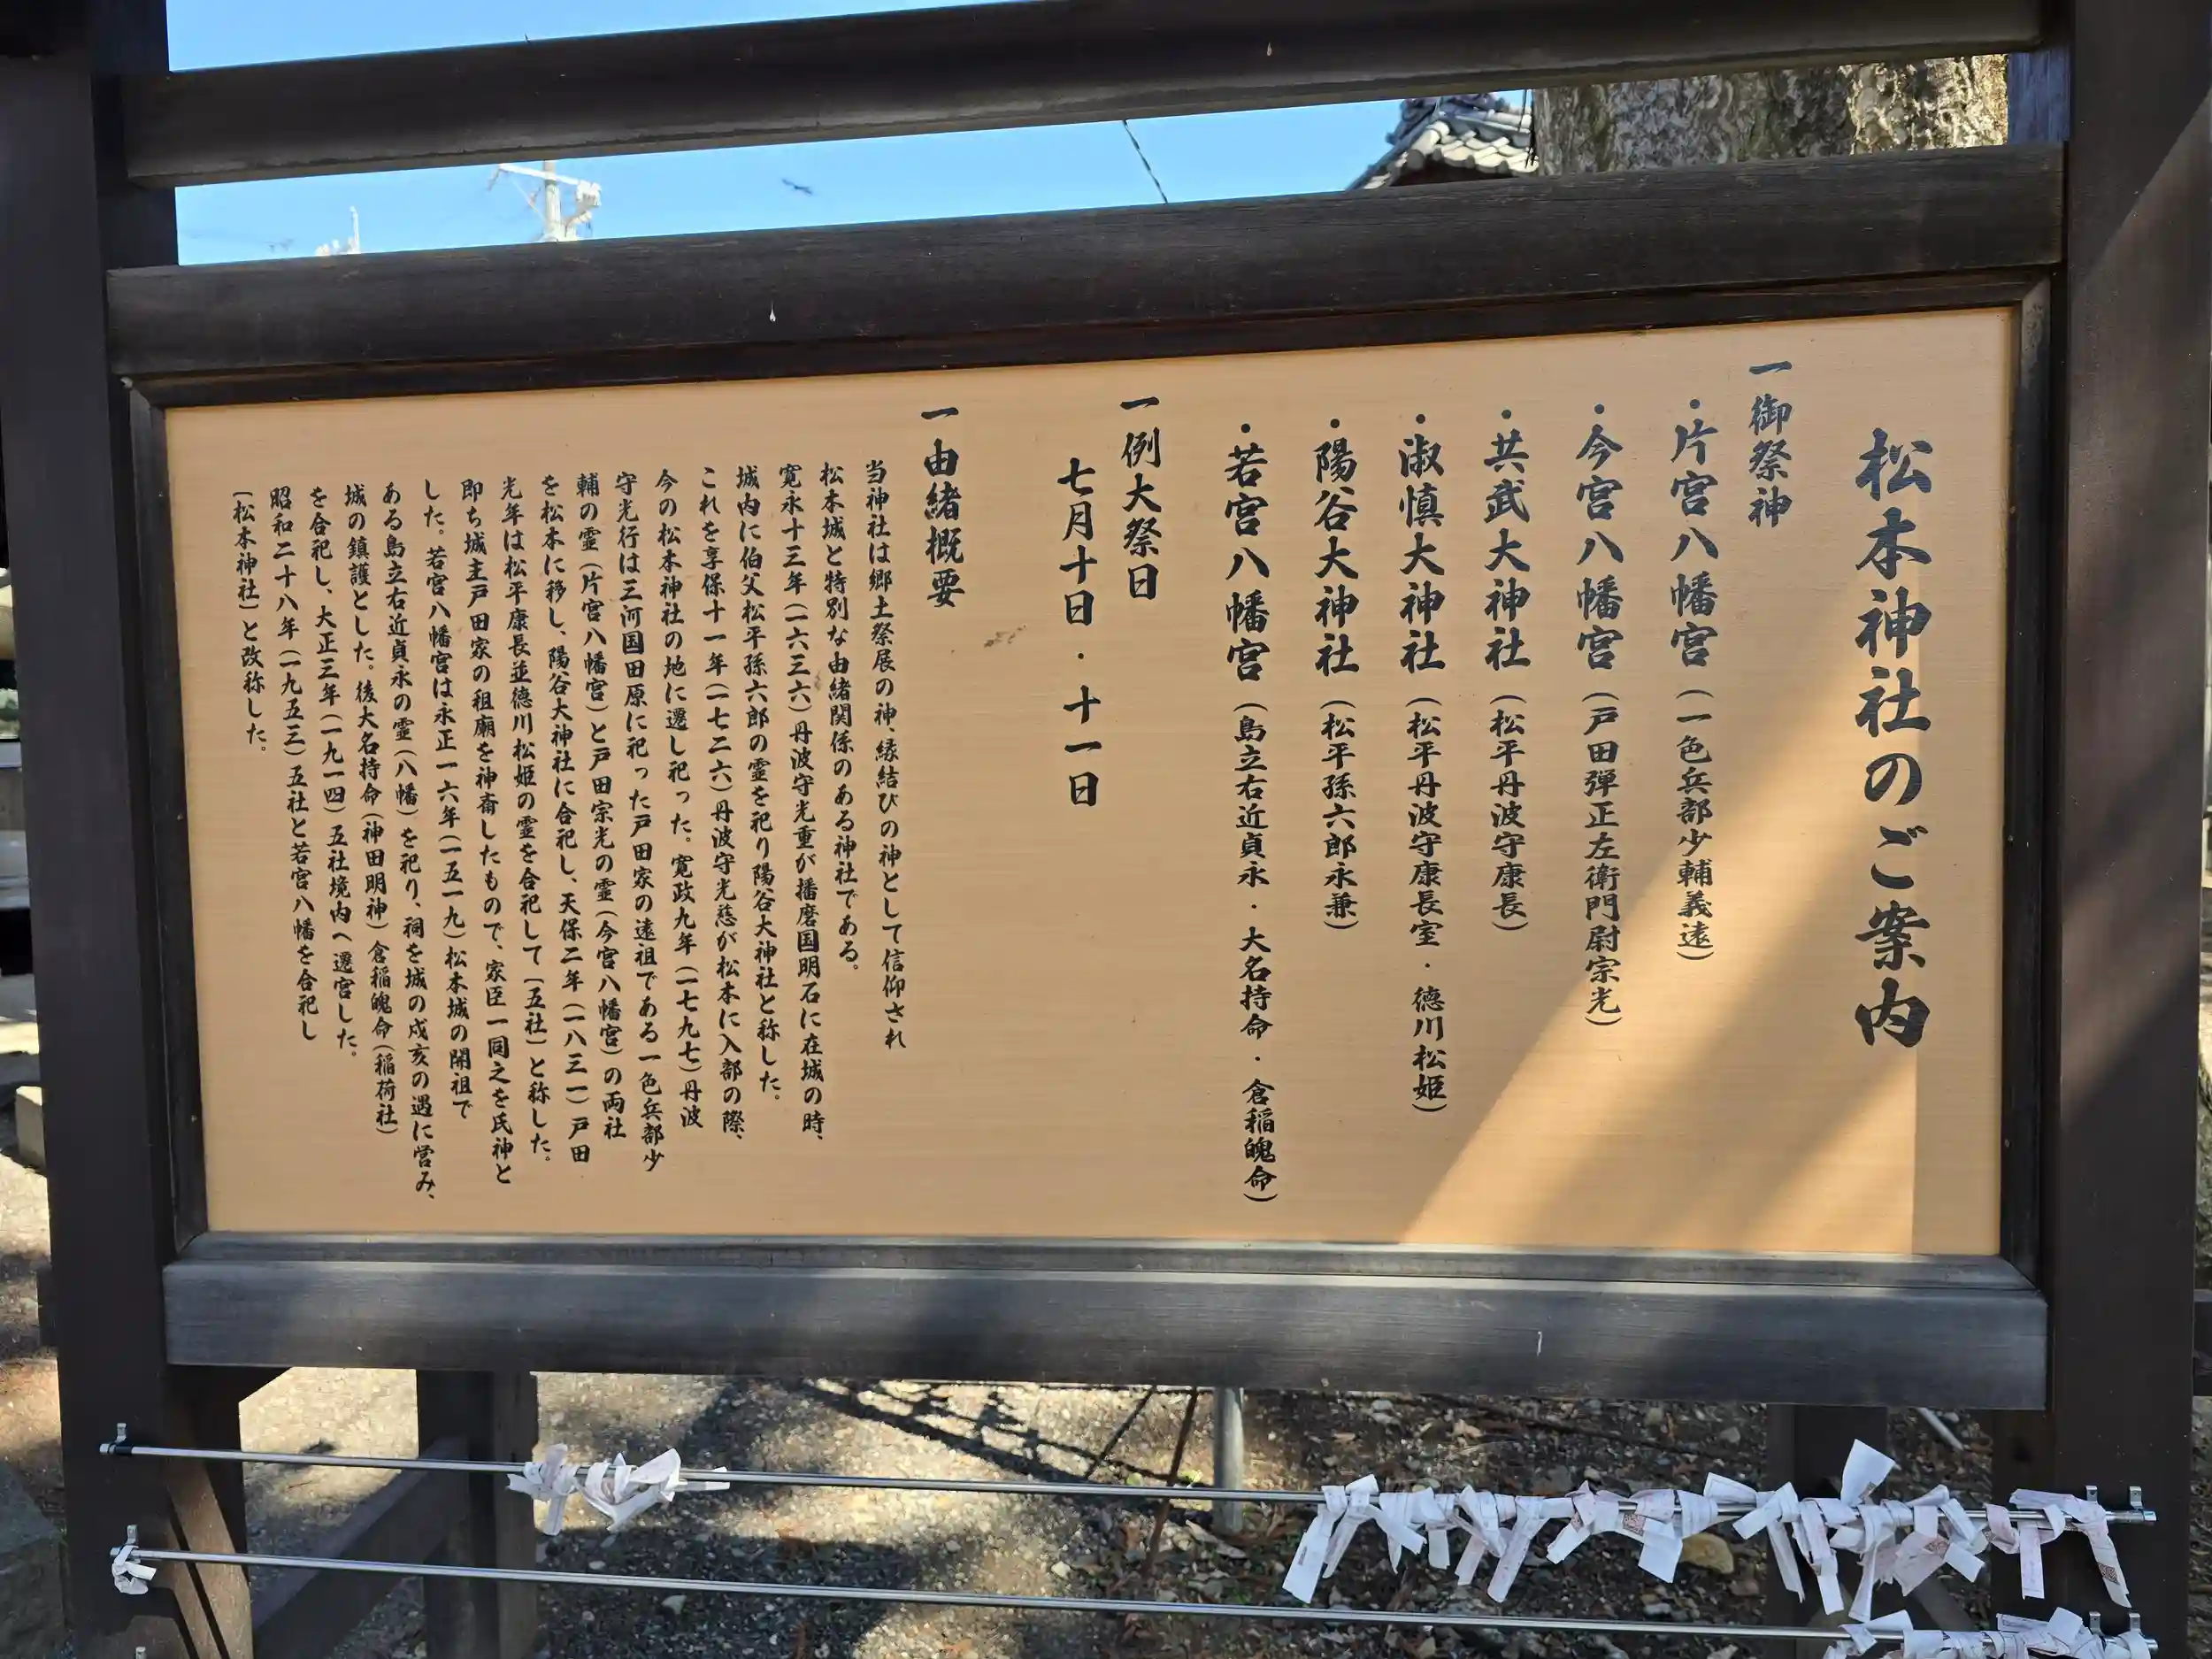 松本神社のご案内
一御祭神
・片宮八幡宮(一色兵部少輔義遠)
・今宮八幡宮(戸田弾正左衛門尉宗光)
・共武大神社(松平丹波守康長)
・淑慎大神社(松平丹波守康長室・徳川松姫)
・陽谷大神社(松平孫六郎永兼)
・若宮八幡宮(島立右近貞永・大名持命・倉稲魄命)
一例大祭日
七月十日・十一日
一由緒概要
当神社は郷土祭展の神、縁結びの神として信仰され
松本城と特別な由緒関係のある神社である。
寛永十三年(一六三六)丹波守光重が播磨国明石に在城の時、
城内に伯父松平孫六郎の霊を祀り陽谷大神社と称した。
これを享保十一年(一七二六)丹波守光慈が松本に入部の際、
今の松本神社の地に遷し祀った。寛政九年(一七九七)丹波
守光行は三河国田原に祀った戸田家の遠祖である一色兵部少
輔の霊(片宮八幡宮)と戸田宗光の霊(今宮八幡宮)の両社
を松本に移し、陽谷大神社に合祀し、天保二年(一八三一)戸田
光年は松平康長並徳川松姫の霊を合祀して〔五社〕と称した。
即ち城主戸田家の祖廟を神斎したもので、家臣一同之を氏神と
した。若宮八幡宮は永正一六年(一五一九)松本城の開祖で
ある島立右近貞永の霊(八幡)を祀り、祠を城の戌亥の遇に営み、
城の鎮護とした。後大名持命(神田明神)倉稲魄命(稲荷社)
を合祀し、大正三年(一九一四)五社境内へ遷宮した。
昭和二十八年(一九五三)五社と若宮八幡を合祀し
〔松本神社〕と改称した。